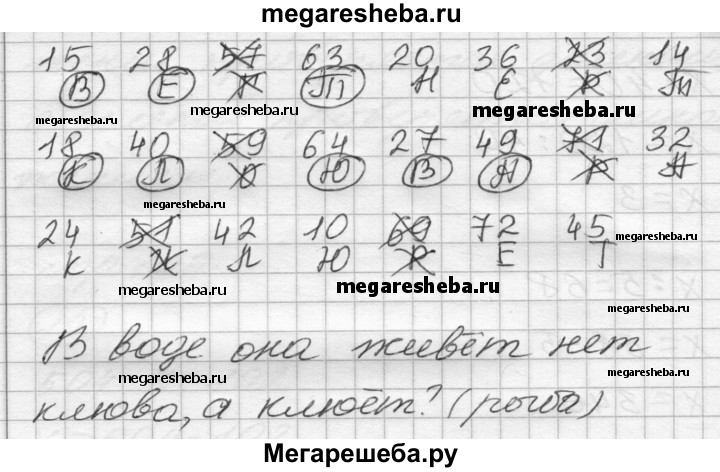 megaresheba.ru
15 28 57 63 20 36 23 14
В Е Й П Н Е Р Т
megaresheba.ru megaresheba.ru megaresheba.ru
18 40 59 64 27 49 71 32
К Л О Ю В А Р А
megaresheba.ru
24 51 42 10 69 72 45
К Ж Л Ю Я Е Т
megaresheba.ru
megaresheba.ru megaresheba.ru
В воде она живёт нет
megaresheba.ru
клюва, а клюёт? (рыба)
Мегарешеба.ру